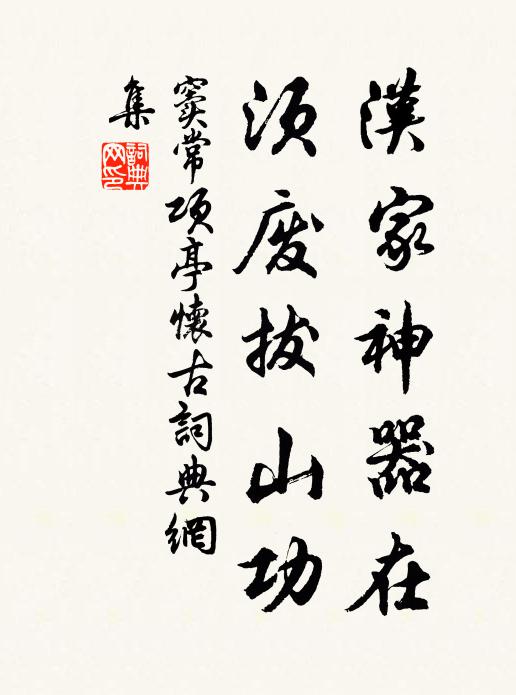 漢家神器在
須廢拔山功
竇常項亭懷古詞典網
集
詞典網印